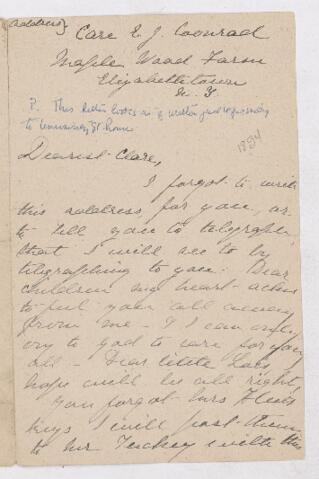 address}
Care E. J. Conrad
Maple Wood Farm
Elizabethtown
N. Y.
P. This letter looks as if written just
to 8t home
1894
Dearest Clare,
I forgot to write
this address for you, or
to tell you to telegraph,
that I will see to by
telegraphing to you. Dear
children my heart aches
to put you all away
from me - & I can only
cry to God to care for you
all - Dear little
hope will be all right,
You forgot Mrs
keys I will post them
to Mr Tuckey with this